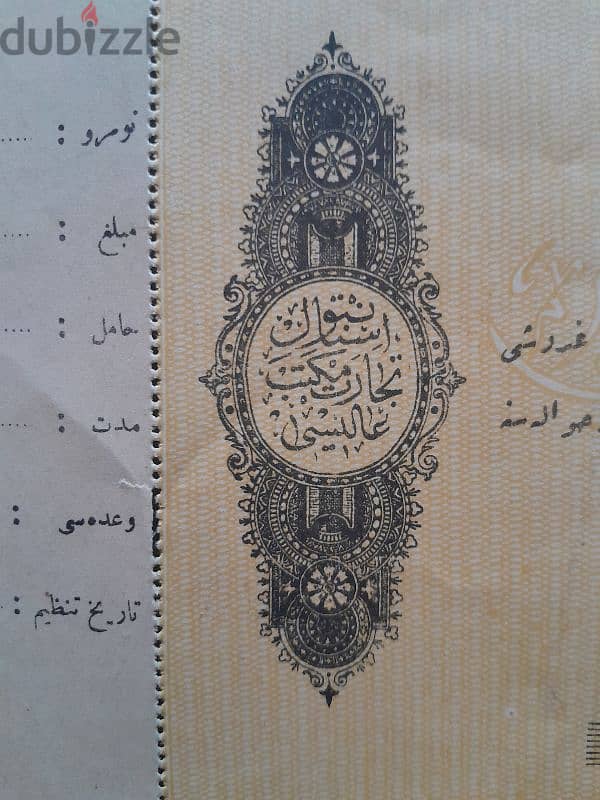 dubizzle
نومرو : .....
مبلغ : ....
حامل : ....
مدت : ....
وعده‌سی :
تاریخ تنظیم :
استانبول
تجارت مکتب
عالیسی
غروشی
حواله سنه